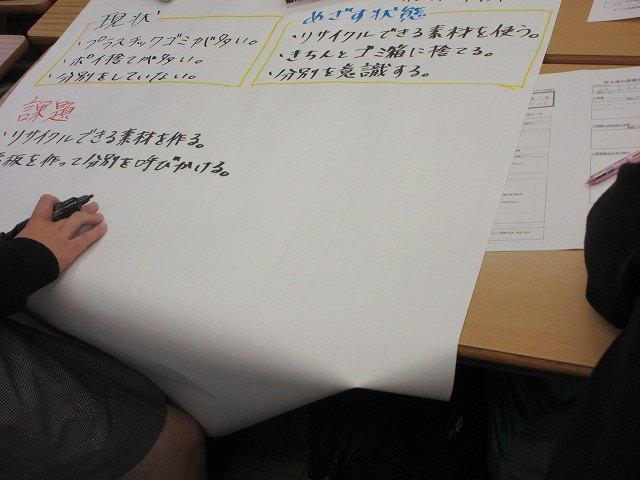 現状
・プラスチックゴミが多い。
・ポイ捨てが多い。
・分別をしていない。
めざす状態
・リサイクルできる素材を使う。
・きちんとゴミ箱に捨てる。
・分別を意識する。
課題
・リサイクルできる素材を作る。
板を作って分別を呼びかける。